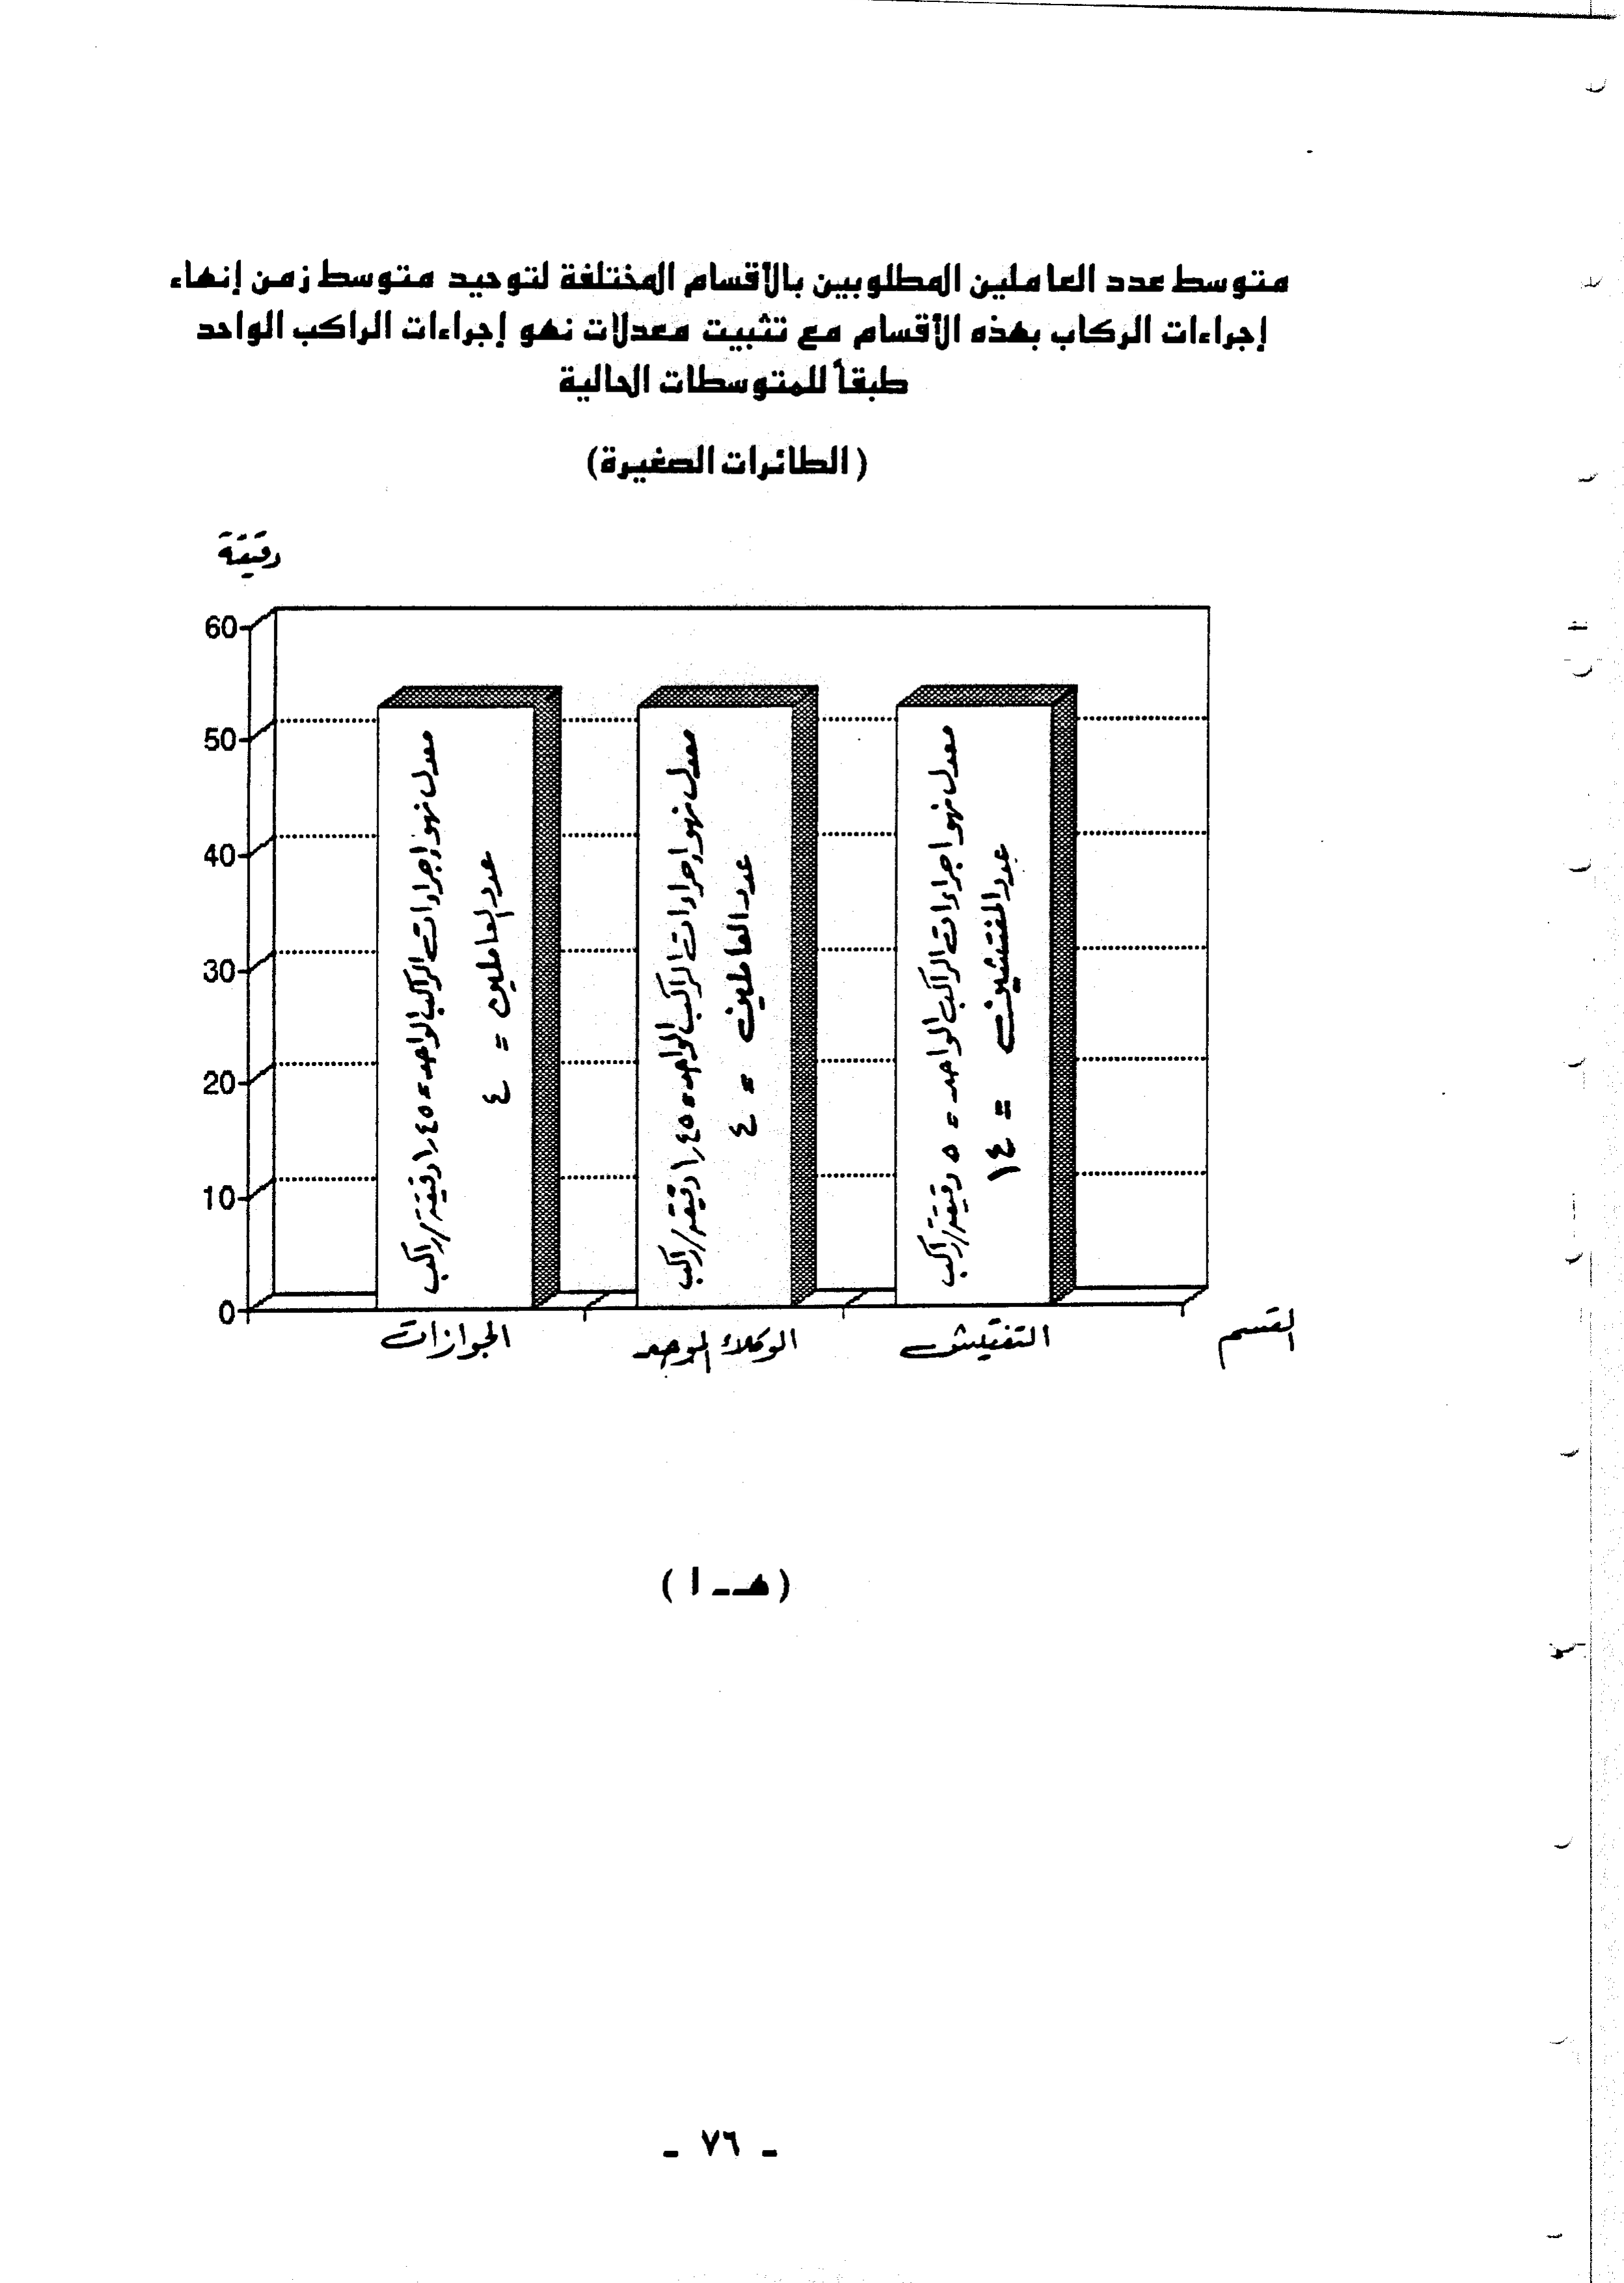 متوسط عدد العاملين المطلوبين بالأقسام المختلفة لتوحيد متوسط زمن إنهاء
إجراءات الركاب بهذه الأقسام مع تثبيت معدلات نهو إجراءات الراكب الواحد
طبقاً للمتوسطات الحالية
(الطائرات الصغيرة)
دقيقة
60
50
40
30
20
10
0
معدل نهو إجراءات الراكب الواحد = ١,٤٥ دقيقة/راكب
عدد العاملين = ٤
معدل نهو إجراءات الراكب الواحد = ١,٤٥ دقيقة/راكب
عدد العاملين = ٤
معدل نهو اجراءات الراكب الواحد = ٥ دقيقة/راكب
عدد المفتشين = ١٤
الجوازات
الوكلاء الموحد
التفتيش
القسم
(هـ - ١)
- ٧٦ -